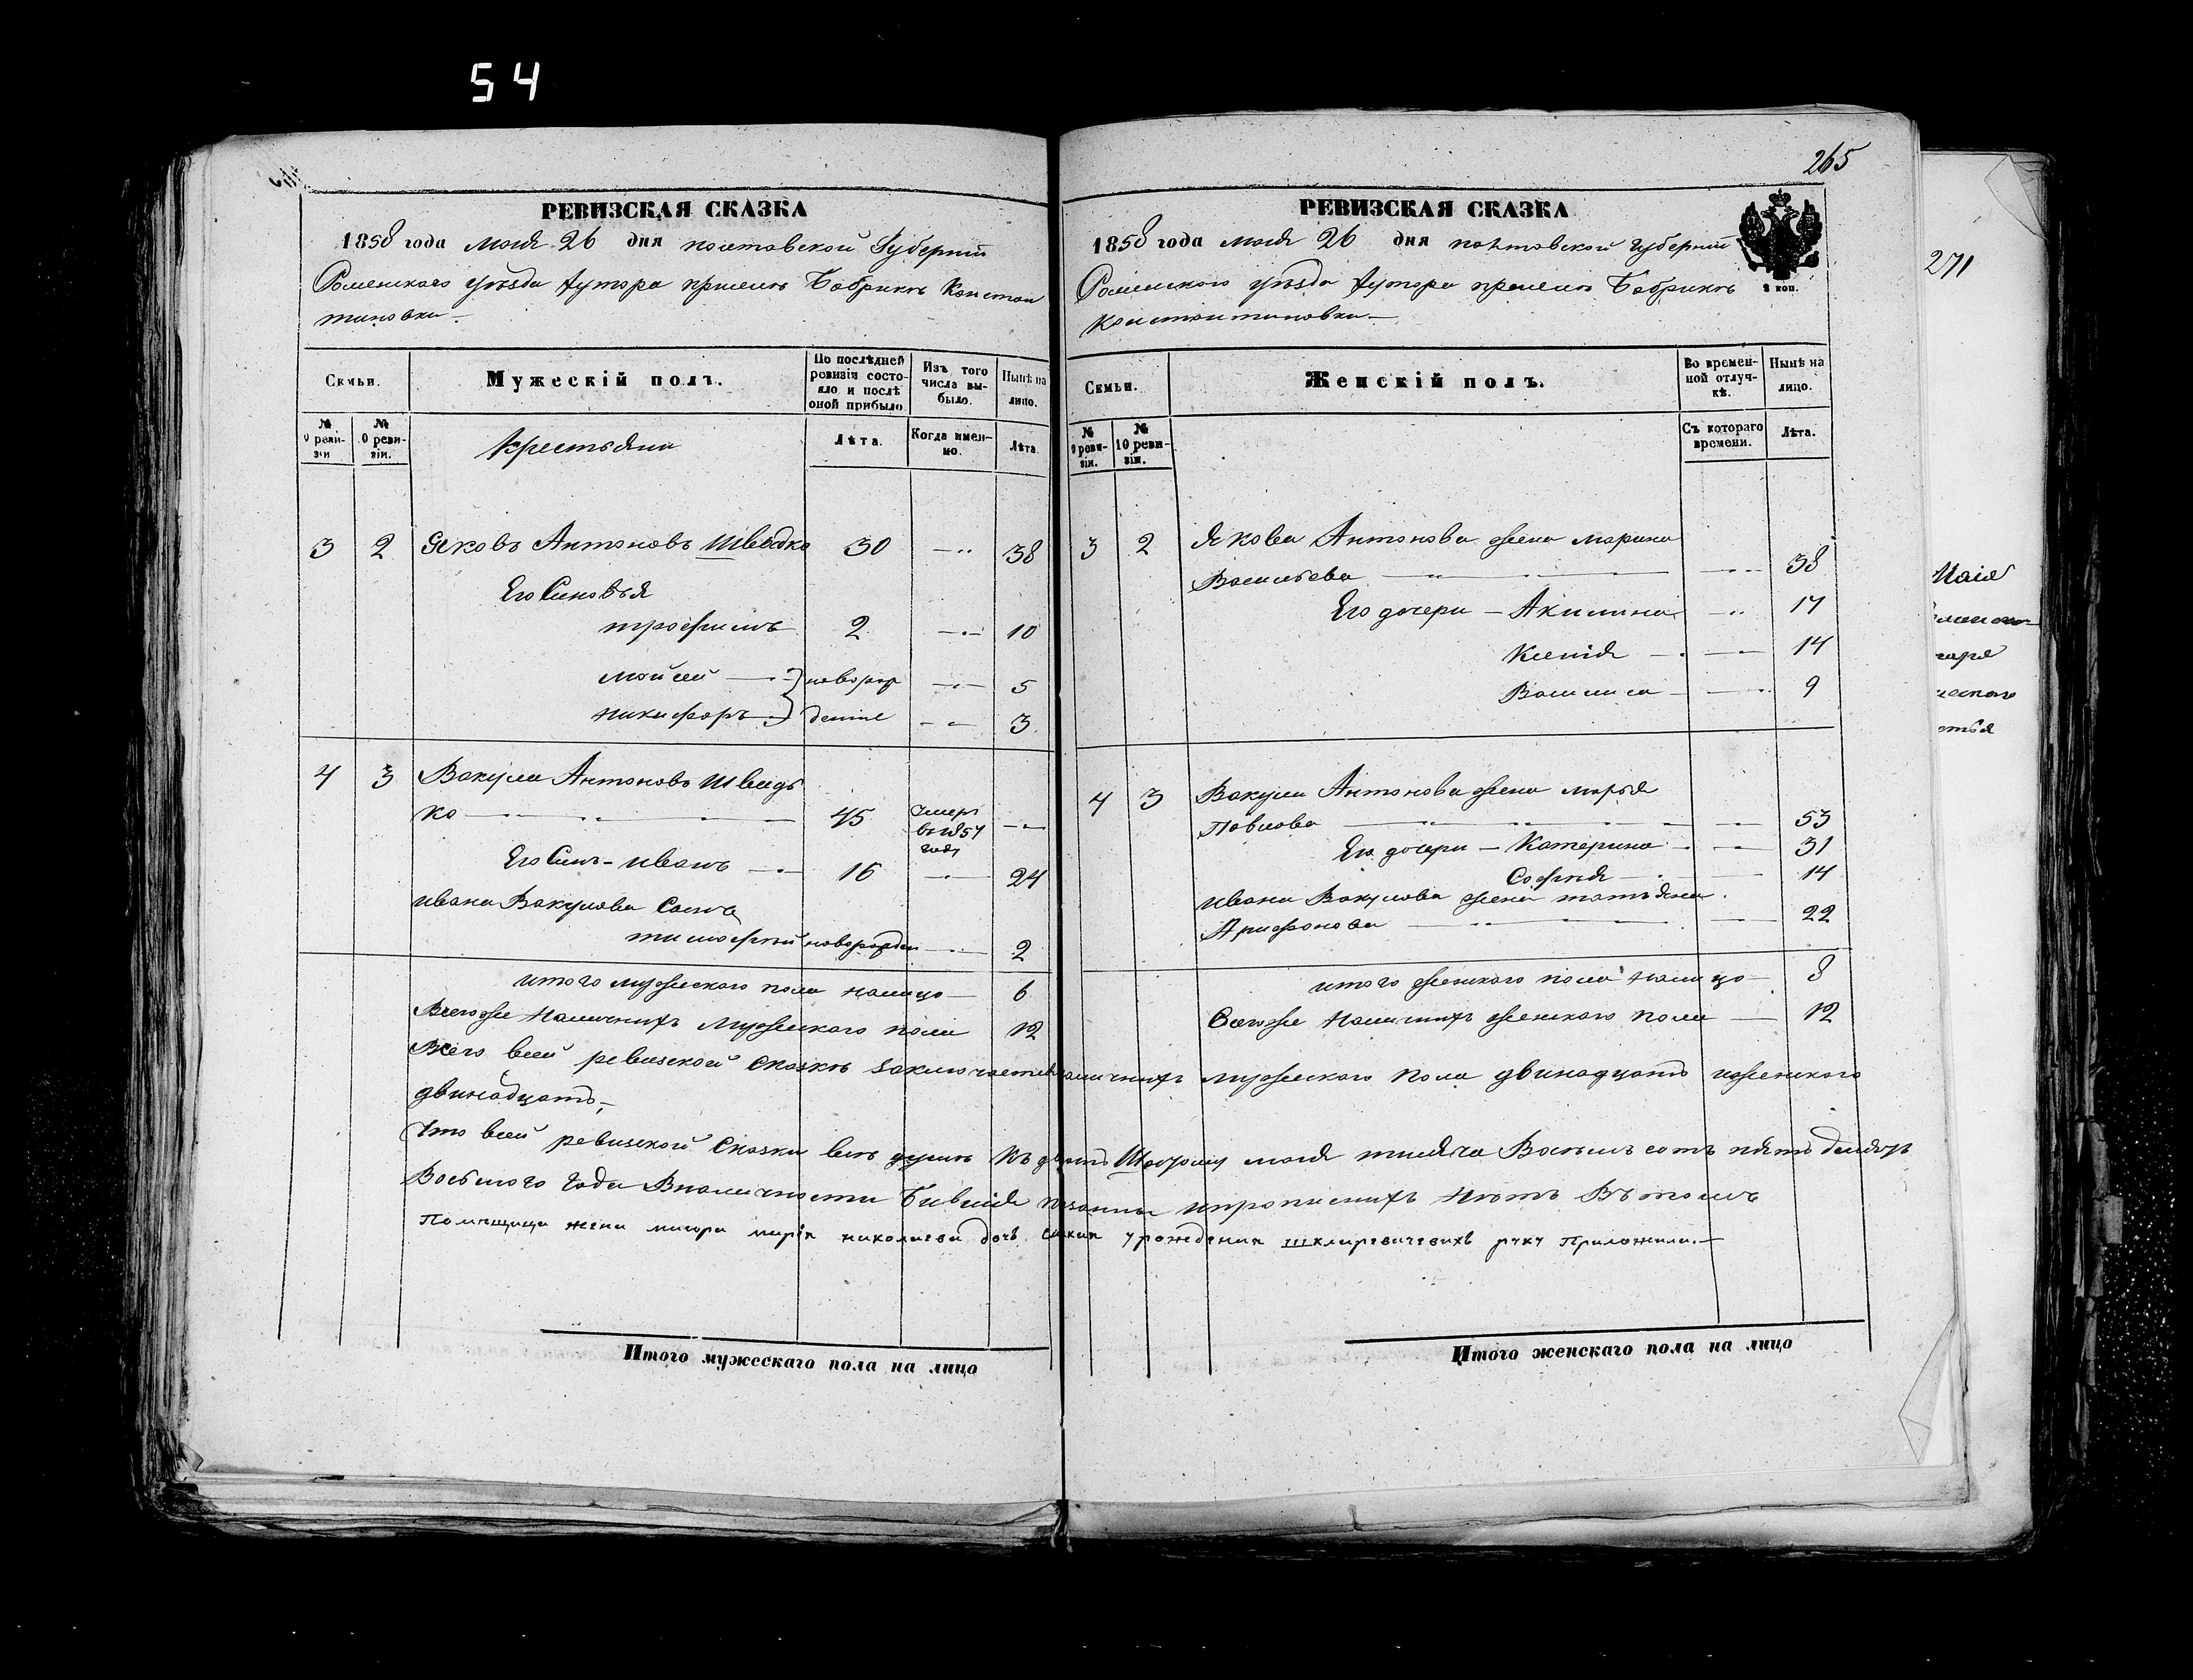 54
265
РЕВИЗСКАЯ СКАЗКА
1858 года моия 26 дня полтавской Губернии
Роменского уезда Хутора при селе Бобрике Констан
тиновки
Семьи.
Мужескій полъ.
По послѣдней ревизіи состояло и послѣ оной прибыло
Изъ того числа выбыло.
Нынѣ на лицо.
№ 9 ревизіи
№ 10 ревизіи.
Крестьяна
Лѣта.
Когда именно.
Лѣта.
3 2 Яковъ Антоновъ Шведко 30 38
Его Синовья
трофимъ 2 10
Мойсей новорож 5
Никифоръ дение 3
4 3 Вакула Антоновъ Швидь
ко 45 Умеръ в 1857 году
Его Синъ - иванъ 16 24
ивана Вакулова Синъ
тимофтий новорожден 2
итого мужеского пола налицо 6
Всегоже наличнихъ Мужеского пола 12
РЕВИЗСКАЯ СКАЗКА
1858 года моия 26 дня полтовской губернии
Роменского уезда Хутора при селе Бобрике
Константиновки
2 коп.
Семьи.
Женскій полъ.
Во временной отлучкѣ.
Нынѣ на лицо.
№ 9 ревизіи.
№ 10 ревизіи.
Съ котораго времени.
Лѣта.
3 2 Якова Антонова жена марина
Васильева 38
Его дочери - Акилина 17
Ксенія 14
Василиса 9
4 3 Вакули Антонова жена марья
Павлова 53
Его дочери - Катерина 31
Софья 14
ивана Вакулова жена татьяна
22
итого женского пола налицо 8
Всегоже наличнихъ женского пола 12
Всего всей ревизской сказке заключается наличнихъ мужеского пола двинадцать иженского
двинадцать,
Что всей ревизской Сказки все души къ двадть Шостому моия тисяча Восемь сотъ пять десять
Восьмого Года Вналичности Бившия инрописнихъ Нетъ Въ томъ
Помещица жена маиора мария николаева дочь урожденая шкляревичевихъ руку Приложила.
Итого мужескаго пола на лицо
Итого женскаго пола на лицо
271
Маія